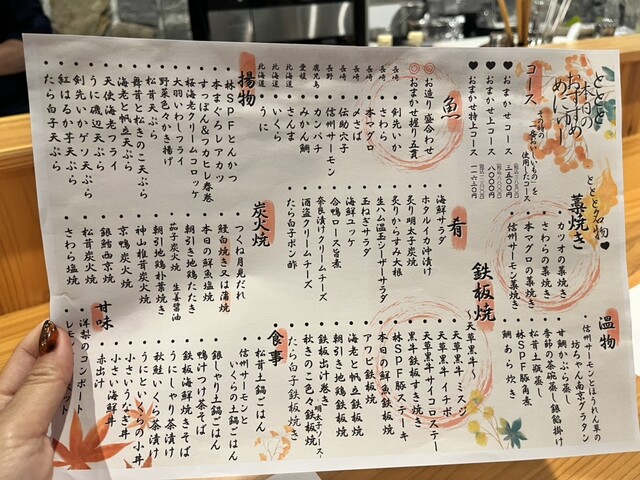 とととと
本日の
おすすめ
めにゅー
コース
その時の
一番おいしいものを
使用したコース
♥おまかせコース 三五〇〇円
♥おまかせ上コース 八〇〇〇円
♥おまかせ特上コース 一一六三〇円
とととと名物♥
藁焼き
・カツオの藁焼き
・さわらの藁焼き
・本マグロの藁焼き
・信州サーモン藁焼き
温物
・信州サーモンとほうれん草の
坊ちゃん南京グラタン
・甘鯛かぶら蒸し
・季節の茶碗蒸し銀餡掛け
・松茸土瓶蒸し
・林SPF豚角煮
・鯛あら炊き
魚
◎お造り盛合わせ
◎おまかせ握り五貫
長崎・剣先いか
長崎・さわら
長崎・本マグロ
長崎・〆さば
長崎・伝助穴子
長野・信州サーモン
鹿児島・カンパチ
愛媛・みかん鯛
北海道・さんま
北海道・いくら
北海道・うに
肴
・海鮮サラダ
・ホタルイカ沖漬け
・炙り明太子
・炙りからすみ大根
・生ハム温玉シーザーサラダ
・玉ねぎサラダ
・海鮮ユッケ
・合鴨ロース旨煮
・奈良漬けクリームチーズ
・酒盗クリームチーズ
・たら白子ポン酢
鉄板焼
～天草黒牛～
・天草黒牛ミスジ
・天草黒牛イチボ
・天草黒牛サイコロステーキ
・黒牛鉄板すき焼き
・林SPF豚ステーキ
・本日の鮮魚鉄板焼
・アワビ鉄板焼
・海老と帆立鉄板焼
・朝引き地鶏鉄板焼
・鉄板出汁巻き
～明太チーズソース～
・秋きのこ色々鉄板焼
・たら白子鉄板焼き
揚物
・林SPFとんかつ
・本まぐろレアカツ
・すっぽん＆フカヒレ春巻
・桜海老クリームコロッケ
・大羽いわしフライ
・野菜色々かき揚げ
・松茸天ぷら
・舞茸と松きのこ天ぷら
・海老と帆立天ぷら
・天使海老フライ
・うに磯辺天ぷら
・剣先いかゲソ天ぷら
・紅はるか芋天ぷら
・たら白子天ぷら
炭火焼
・つくね月見だれ
・鰻白焼き又は蒲焼
・本日の鮮魚塩焼
・朝引き地鶏たたき
・朝引き地鶏朴葉焼き
・茄子炭火焼 生姜醤油
・神山椎茸炭火焼
・京鴨炭火焼
・銀鱈西京焼
・松茸炭火焼
・さわら塩焼
食事
・松茸土鍋ごはん
・信州サーモンと
いくらの土鍋ごはん
・銀しゃり土鍋ごはん
・鴨汁つけ蕎麦
・鉄板海鮮焼きそば
・うにしゃり茶漬け
・秋鮭いくら茶漬け
・うにといくらの小丼
・小さいうなぎ丼
・小さい海鮮丼
・赤出汁
甘味
・洋梨のコンポート